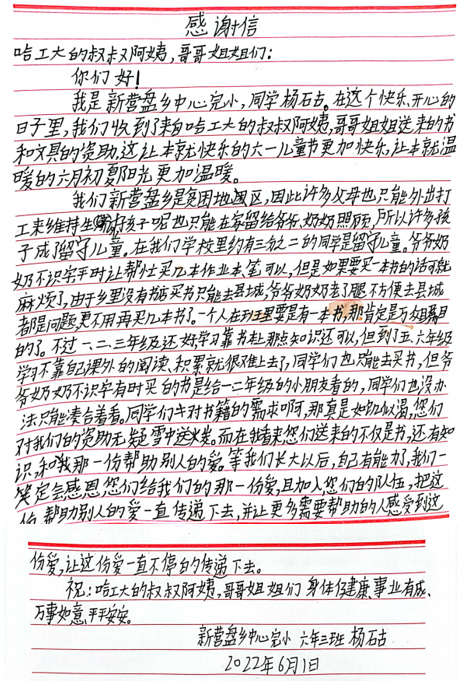 感谢信
哈工大的叔叔阿姨，哥哥姐姐们：
你们好！
我是新营盘乡中心完小，同学杨石古。在这个快乐、开心的
日子里，我们收到了来自哈工大的叔叔阿姨，哥哥姐姐送来的书
和文具的资助，这让本就快乐的六一儿童节更加快乐，让本就温
暖的六月初夏阳光更加温暖。
我们新营盘乡是贫困地区，因此许多父母也只能外出打
工来维持生活，孩子呢也只能在家留给爷爷、奶奶照顾，所以许多孩
子成了留守儿童，在我们学校里约有三分之二的同学是留守儿童，爷爷奶
奶不识字平时让帮忙买几本作业本、笔可以，但是如果要买一本书的话可就
麻烦了，由于乡里没有书店买书只能去县城，爷爷奶奶老了腿不方便去县城
都是问题更不用再买几本书了。一个人在班里要是有一本书，那肯定是万众瞩目
的了。不过一、二、三年级还好学习靠书上那点知识还可以，但到了五、六年级
学习不靠自己课外的阅读、积累就很难上去了，同学们也只能去买书，但爷
爷奶奶不识字有时买的书是给一二年级的小朋友看的，同学们也没办
法只能凑合着看。同学们对书籍的需求啊，那真是如饥似渴，您们
对我们的资助无疑雪中送炭。而在我看来您们送来的不仅是书，还有知
识，和那一份帮助别人的爱。等我们长大以后，自己有能力了，我们一
定会感恩您们给我们的那一份爱，且加入您们的队伍，把这
份，帮助别人的爱一直传递下去，并让更多需要帮助的人感受到这
份爱，让这份爱一直不停的传递下去。
祝：哈工大的叔叔阿姨，哥哥姐姐们身体健康、事业有成、
万事如意、平平安安。
新营盘乡中心完小 六年三班 杨石古
2022年6月1日